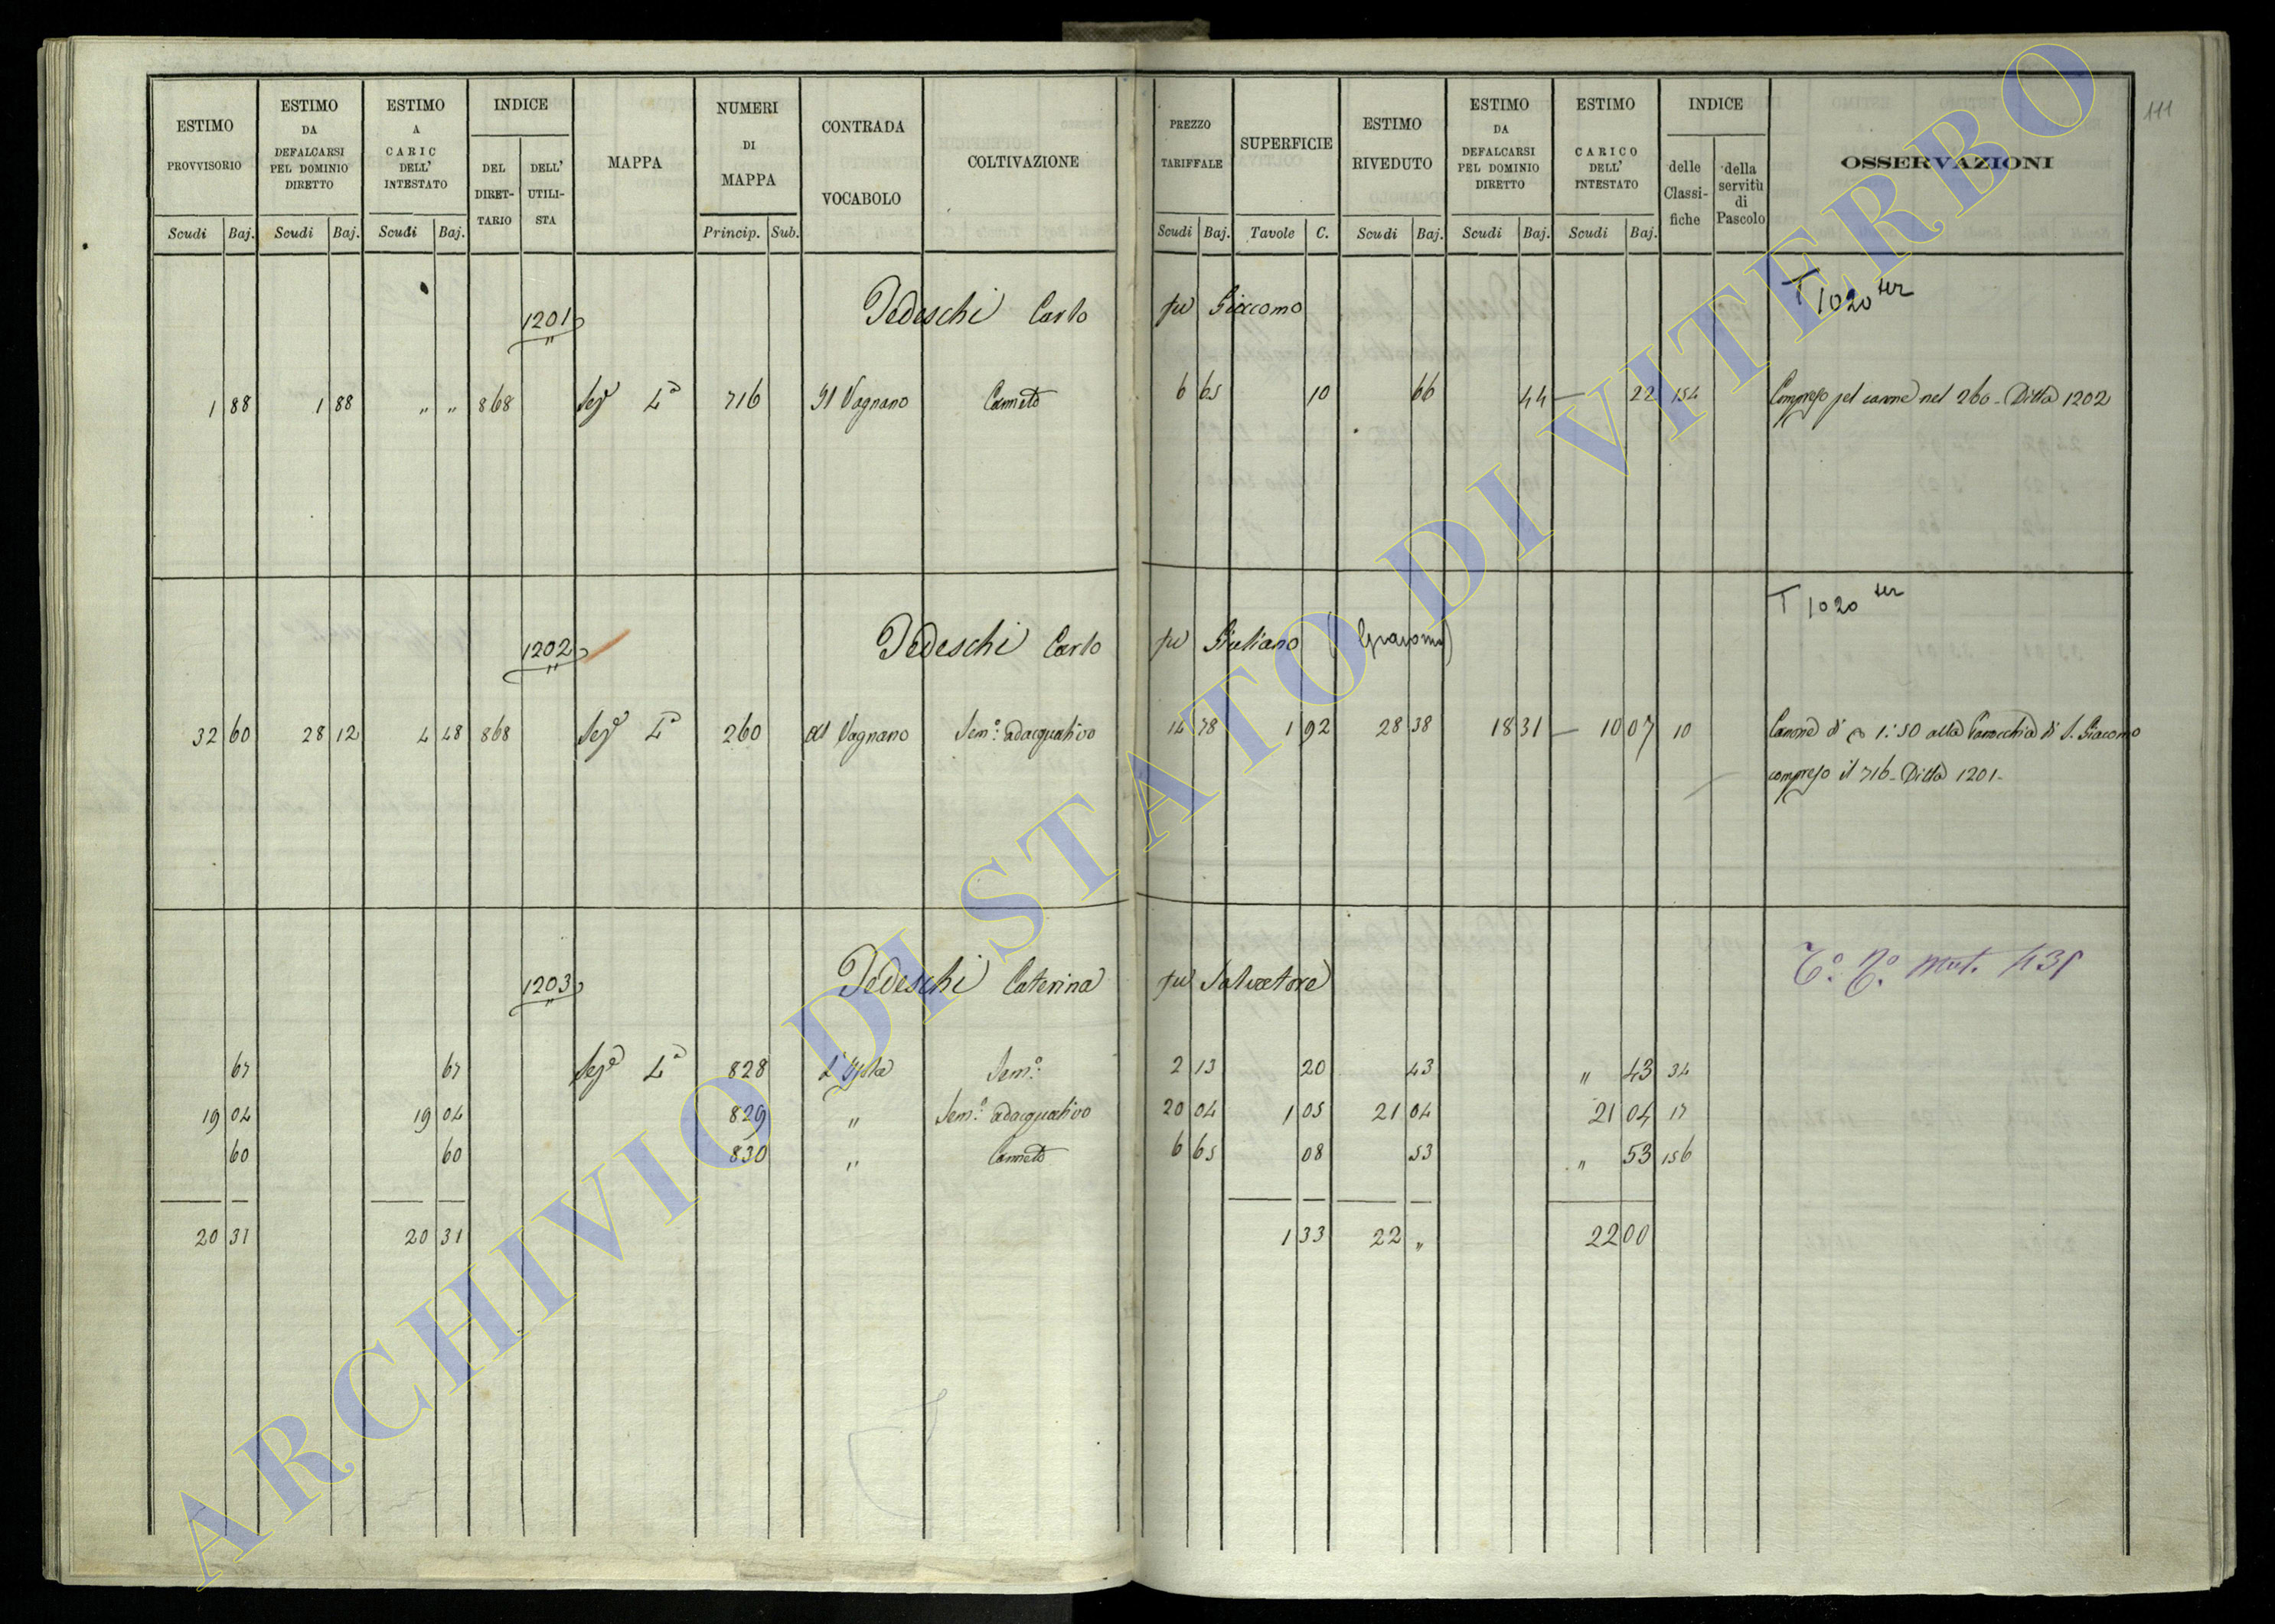 ESTIMO PROVVISORIO
ESTIMO DA DEFALCARSI PEL DOMINIO DIRETTO
ESTIMO A CARIC DELL' INTESTATO
INDICE
DEL DIRET-TARIO
DELL' UTILI-STA
MAPPA
NUMERI DI MAPPA
CONTRADA VOCABOLO
COLTIVAZIONE
PREZZO TARIFFALE
SUPERFICIE
ESTIMO RIVEDUTO
ESTIMO DA DEFALCARSI PEL DOMINIO DIRETTO
ESTIMO A CARICO DELL' INTESTATO
INDICE
delle Classi-fiche
della servitù di Pascolo
OSSERVAZIONI
111
Scudi Baj. Scudi Baj. Scudi Baj. Princip. Sub. Scudi Baj. Tavole C. Scudi Baj. Scudi Baj. Scudi Baj.
1201 Tedeschi Carlo fu Giacomo T 1020 ter
1 88 1 88 " " 868 Sez.e 4a 716 Il Vagnano Canneto 6 65 10 66 44 — 22 154 Compreso pel canone nel 260 - Ditta 1202
T 1020 ter
1202 Tedeschi Carlo fu Giuliano (Giacomo)
32 60 28 12 4 48 868 Sez.e 4a 260 Il Vagnano Sem.o adacquativo 14 78 1 92 28 38 18 31 — 10 07 10 Canone di 1:50 alla Parrocchia di S. Giacomo
compreso il 716 - Ditta 1201 -
1203 Tedeschi Caterina fu Salvatore mut. 435
67 67 Sez.e 4a 828 L'Isola Sem.o 2 13 20 43 " 43 34
19 04 19 04 829 " Sem.o adacquativo 20 04 1 05 21 04 21 04 17
60 60 830 " Canneto 6 65 08 53 " 53 156
20 31 20 31 1 33 22 " 22 00
ARCHIVIO DI STATO DI VITERBO